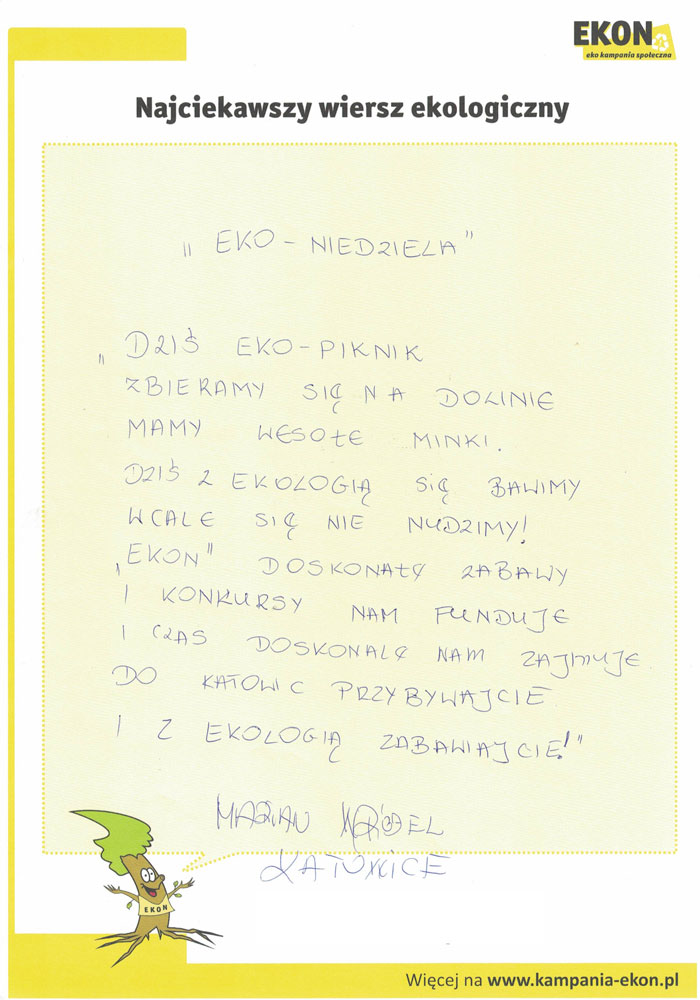 EKON
eko kampania społeczna
Najciekawszy wiersz ekologiczny
„EKO - NIEDZIELA”
„DZIŚ EKO-PIKNIK
ZBIERAMY SIĘ NA DOLINIE
MAMY WESOŁE MINKI.
DZIŚ Z EKOLOGIĄ SIĘ BAWIMY
WCALE SIĘ NIE NUDZIMY!
„EKON” DOSKONAŁĘ ZABAWY
I KONKURSY NAM FUNDUJE
I CZAS DOSKONALĘ NAM ZAJMUJE
DO KATOWIC PRZYBYWAJCIE
I Z EKOLOGIĄ ZABAWIAJCIE!”
MARIAN WRÓBEL
KATOWICE
EKON
Więcej na www.kampania-ekon.pl